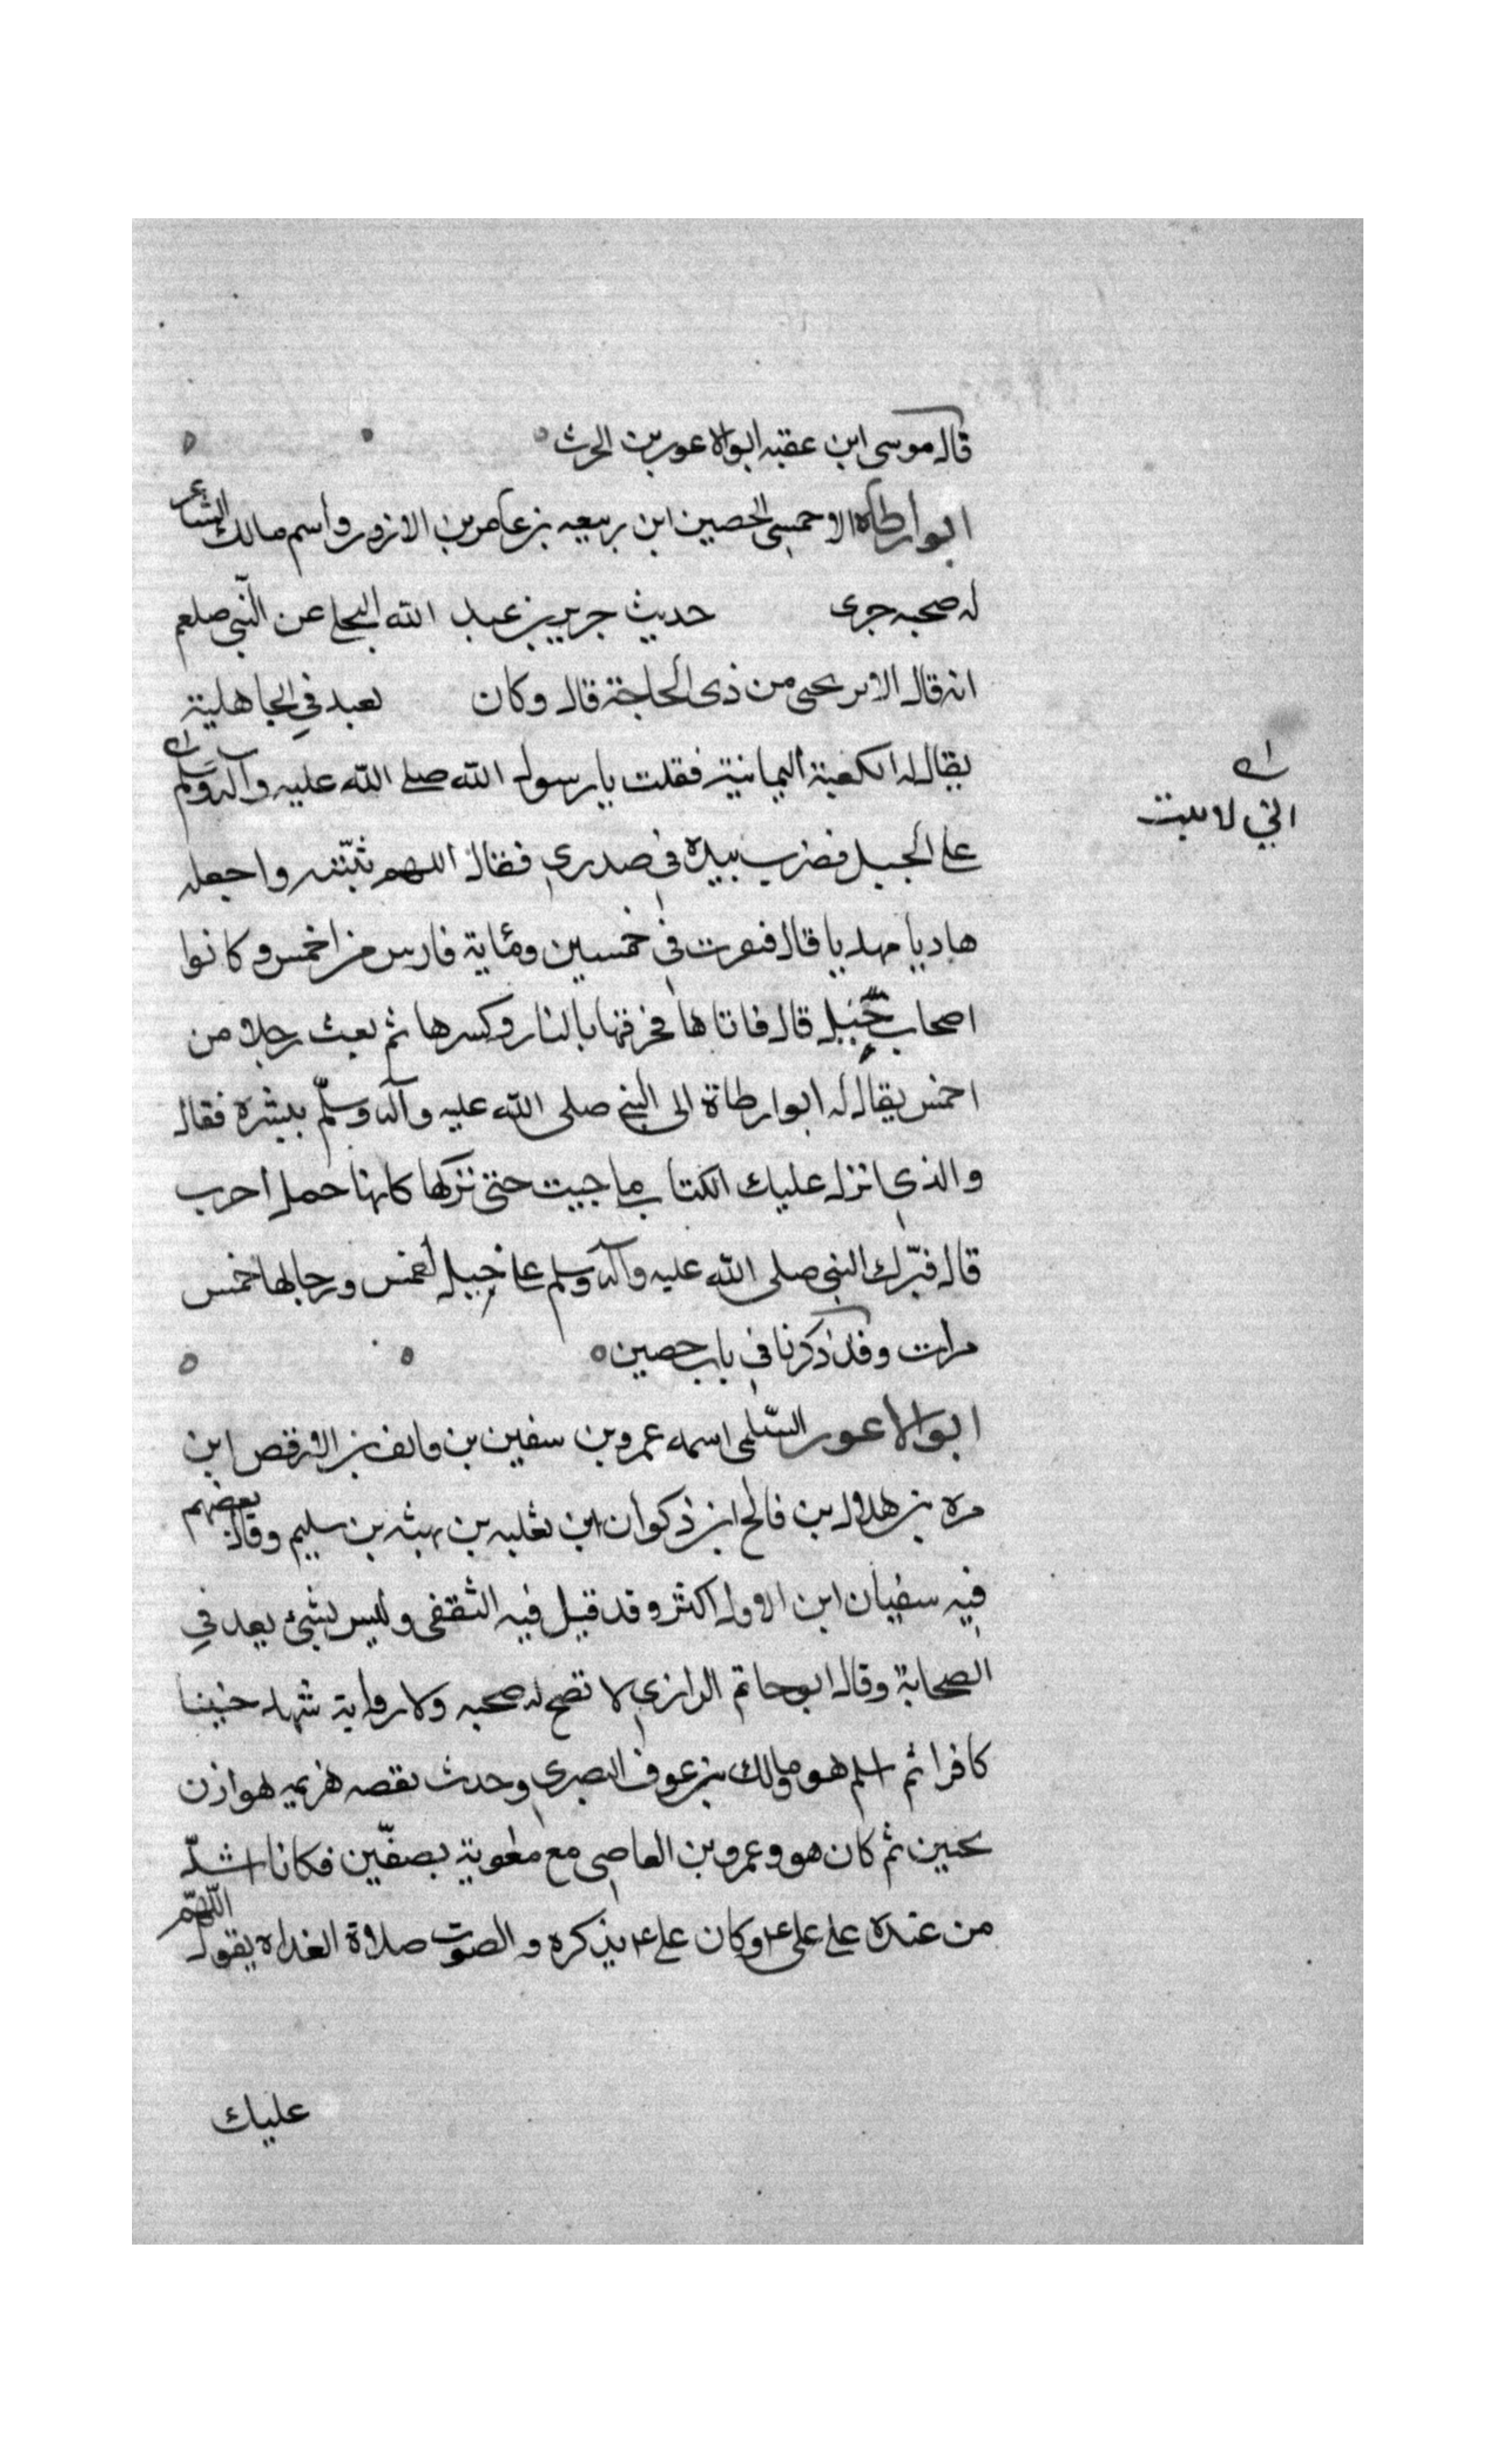 قال موسى ابن عقبه ابو الاعور بن الحرث
ابو أرطاه الاحمسى الحصين ابن ربيعه بن عامر بن الازور واسم مالك الشاعر
له صحبه جرى حديث جرير بن عبد الله البجلى عن النبي صلعم
انه قال الا تريحنى من ذى الحاجة قال وكان يعبد في الجاهلية
يقال له الكعبة اليمانية فقلت يا رسول الله صلى الله عليه وآله وسلم
انى لا تثبت
على الجبل فضرب بيده في صدري فقال اللهم ثبته واجعله
هاديا مهديا قال فنفرت في خمسين ومائة فارس من احمس وكانوا
اصحاب خيل قال فاتاها فحرقها بالنار وكسرها ثم بعث رجلا من
احمس يقال له ابو ارطاة الى النبي صلى الله عليه وآله وسلم يبشره فقال
والذي انزل عليك الكتاب ما جيت حتى تركها كانها حمل احرب
قال فبرك النبي صلى الله عليه وآله وسلم على خيل احمس ورجالها خمس
مرات وقد ذكرنا في باب حصين
ابو الاعور السلمى اسمه عمرو بن سفين بن قائف بن الاوقص ابن
مره بن هلال بن فالح ابن ذكوان ابن ثعلبه بن بهثه بن سليم وقال بعضهم
فيه سفيان ابن الاول اكثر وقد قيل فيه الثقفى وليس بشئ يعد في
الصحابة وقال ابو حاتم الرازي لا تصح له صحبه ولا رواية شهد حنينا
كافرا ثم اسلم هو ومالك بن عوف البصري وحدث بقصه هزيمه هوازن
بحنين ثم كان هو وعمرو بن العاصى مع معوية بصفّين فكانا اشدّ
من عنده على على ع وكان على ع يذكره و الصوت صلاة الغداه يقول اللهم
عليك